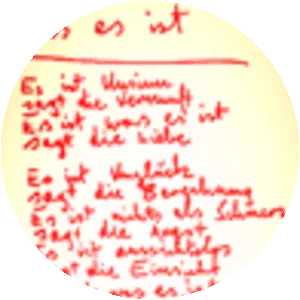 s es ist
Es ist Unsinn
sagt die Vernunft
Es ist was es ist
sagt die Liebe
Es ist Unglück
sagt die Berechnung
Es ist nichts als Schmerz
sagt die Angst
Es ist aussichtslos
t die Einsicht
was es ist